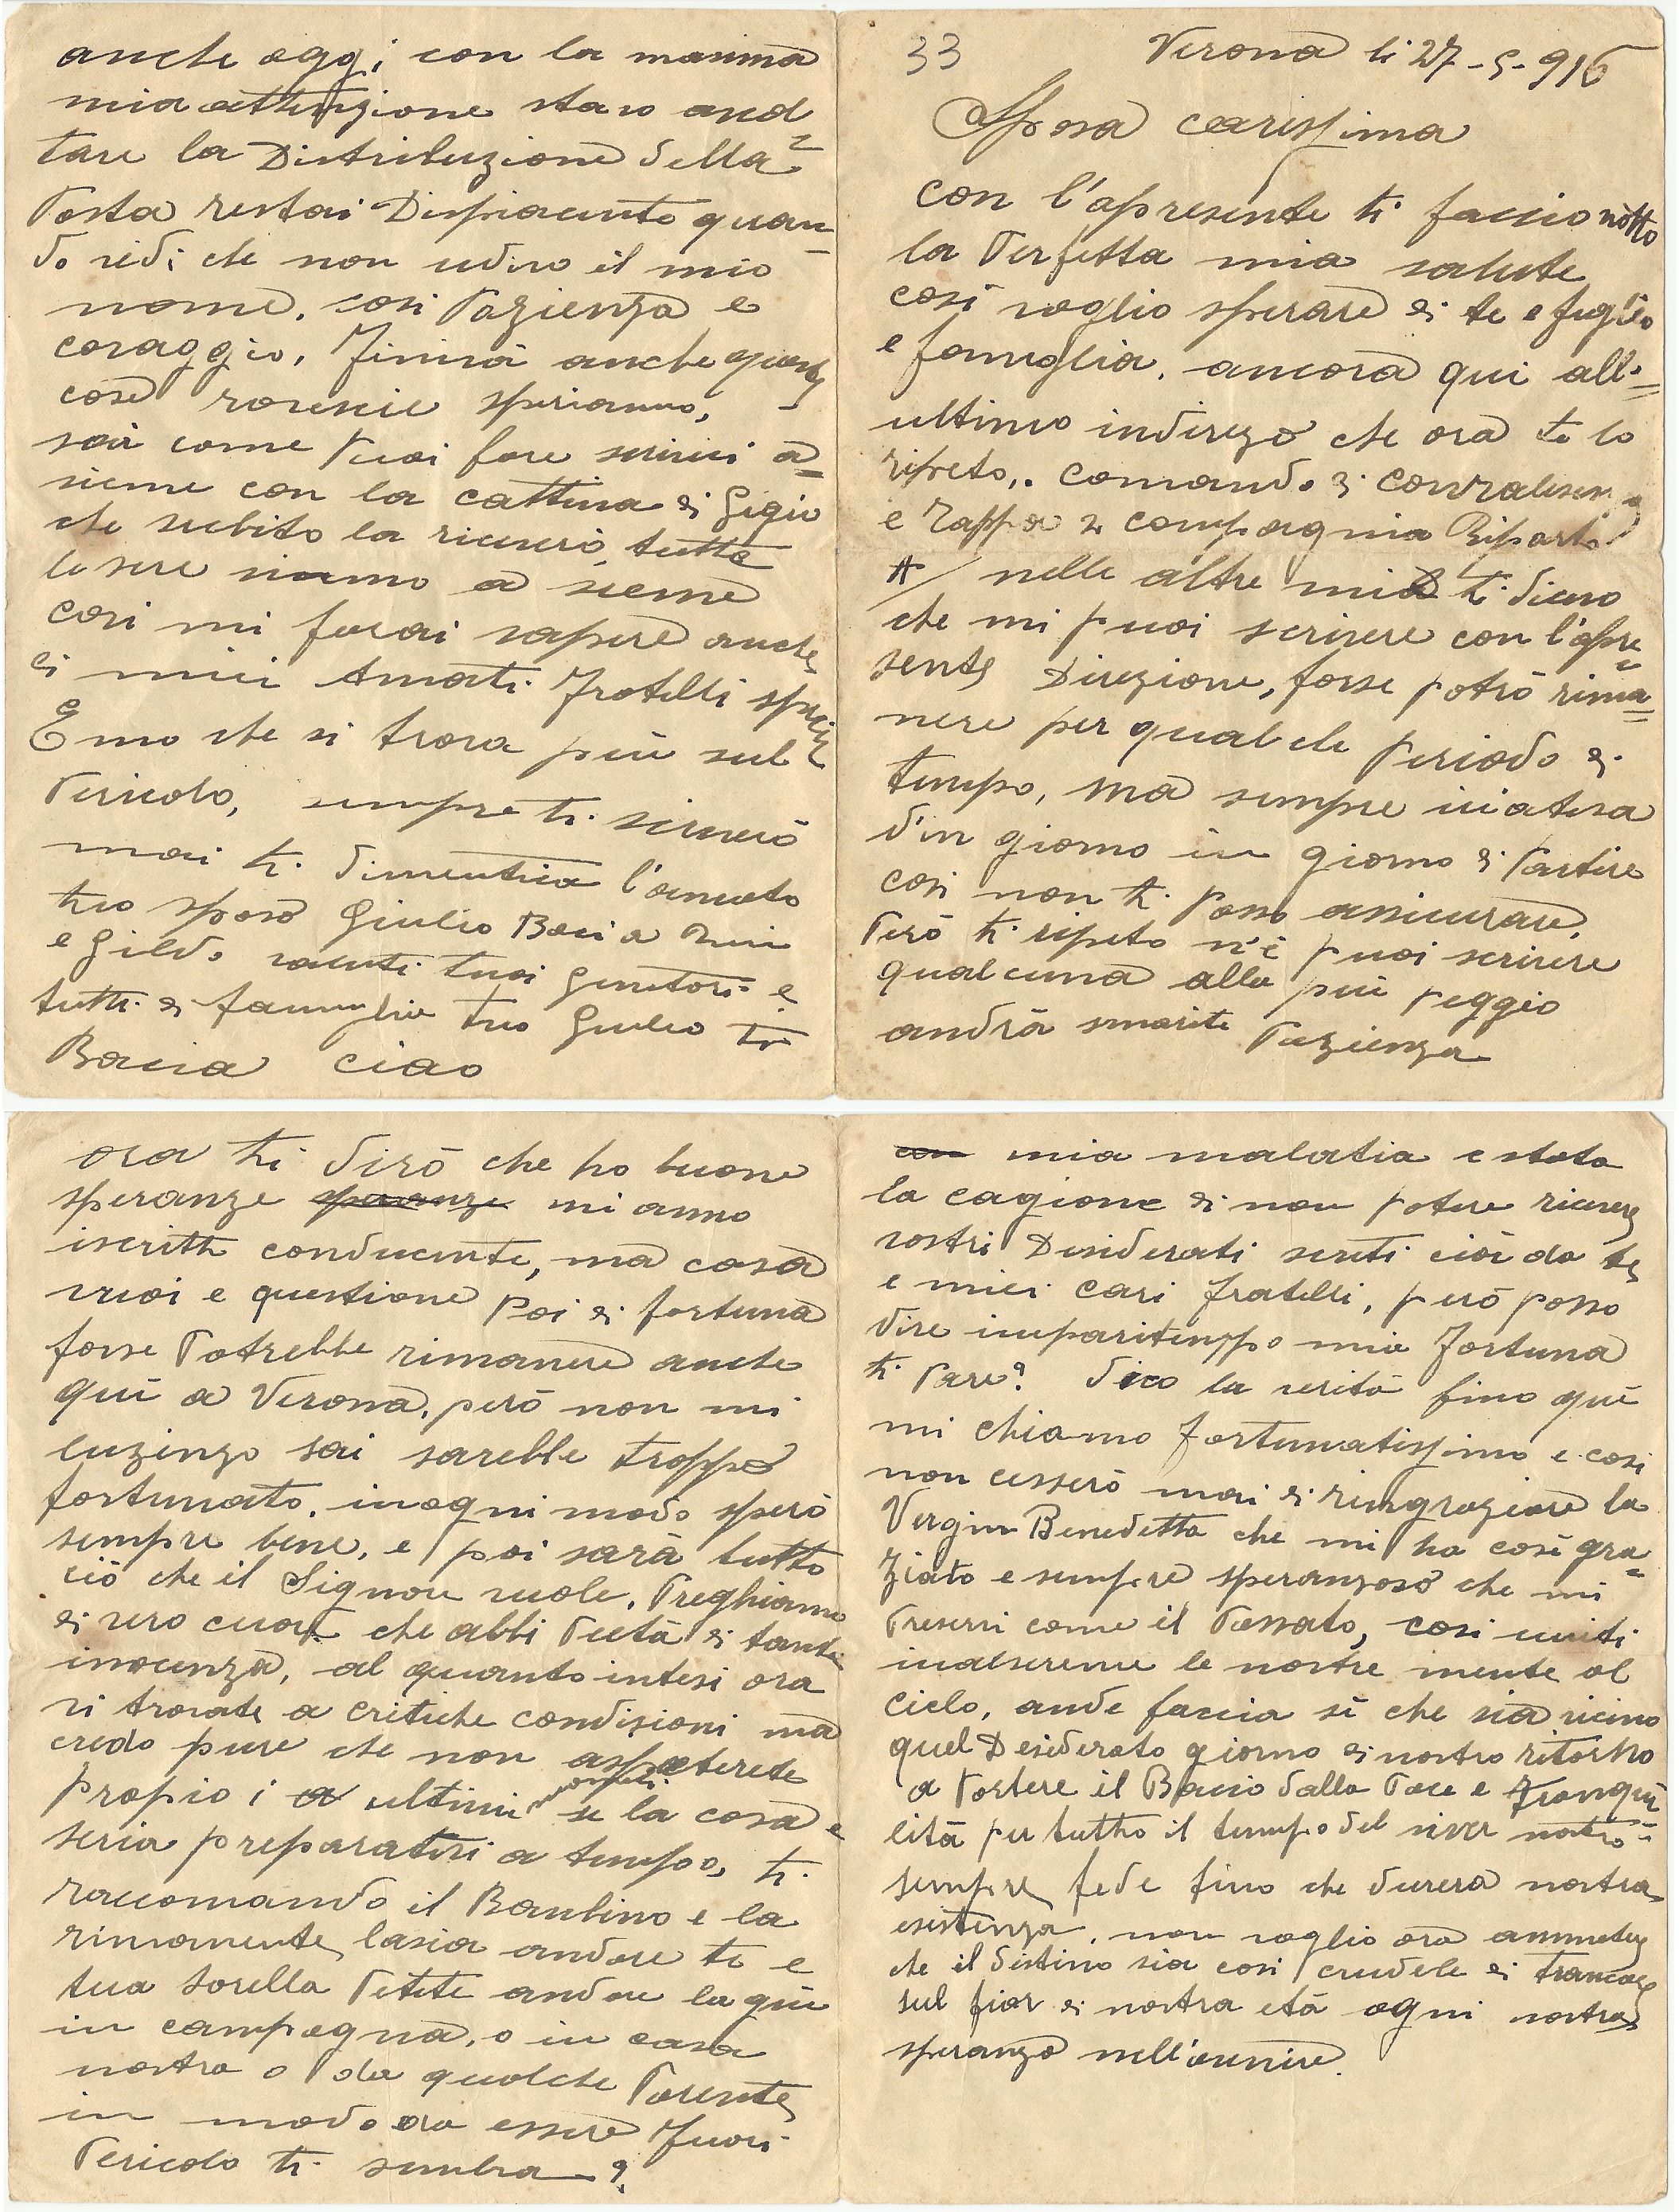 33 Verona li 27-5-916
Sposa carissima
con l'apresente ti faccio notto
la Perfetta mia salute
così voglio sperare di te e figlio
e famiglia, ancora qui all'=
ultimo indirizo che ora te lo
ripeto,. Comando di convalesen
e Tappa 2 compagnia Riparto
A/ nelle altre mie ti dicevo
che mi puoi scrivere con l'apre=
sente Direzione, forse potrò rima=
nere per qualche periodo di
tempo, ma sempre inatesa
d'in giorno in giorno di Partire
cosi non ti posso assicurare,
Però ti ripeto n'è puoi scrivere
qualcuna alla più peggio
andrà smarite Pazienza
ora ti dirò che ho buone
speranze speranze mi anno
iscritto conducente, ma cosa
vuoi e questione poi di fortuna
forse Potrebbe rimanere anche
quì a Verona, però non mi
luzingo sai sarebbe troppo
fortunato, inogni modo spero
sempre bene, e poi sarà tutto
ciò che il Signore vuole, Preghiamo
di vero cuore che abbi Pietà di tante
inocenza, al quanto intesi ora
vi trovate a critiche condizioni ma
credo pure che non aspetterete
propio i a ultimi momenti se la cosa e
seria preparativi a tempo, ti
raccomando il Bambino e la
rimanente lascia andare te e
tua sorella Potete andare la giù
in campagna, o in casa
nostra o da qualche Parente
in modo ora essere Fuori
Pericolo ti sembra?
con mia malatia e stata
la cagione di non potere ricevere
vostri Desiderati scriti cioè da te
e miei cari fratelli, però posso
dire imparitempo mia Fortuna
ti Pare? dico la verità fino quì
mi chiamo fortunatissimo e cosi
non cesserò mai di ringraziare la
Vergin Benedetta che mi ha così gra=
ziato e sempre speranzoso che mi
Preservi come il Passato, cosi uniti
inalseremo le nostre mente al
cielo, ande faccia sì che sia vicino
quel Desiderato giorno di nostro ritorno
a Portere il Bacio dalla Pace e Tranqui=
lità per tutto il tempo del viver nostro
sempre fede fino che durera nostra
esistenza, non voglio ora ammetere
che il distino sia cosi crudele di trancare
sul fior di nostra età ogni nostra
speranza nell'avvenire.
anche oggi con la masima
mia attenzione stavo ascol=
tare la Distribuzione della
Posta restai Dispiacente quan=
do vidi che non udivo il mio
nome, cosi Pazienza e
coraggio, Finirà anche queste
cose rovescie speriamo,
sai come puoi fare scrivi a=
sieme con la cattina di Gigio
che subito la riceverò, tutte
le sere siamo a sieme
cosi mi farai sapere anche
di miei Amati Fratelli special
E mo che si trova più sul
Pericolo, sempre ti scriverò
mai ti dimentica l'amato
tuo sposo Giulio Baci a Nini
e Gildo saluti tuoi Genitori e
tutti di famiglia tuo Giulio ti
Bacia ciao